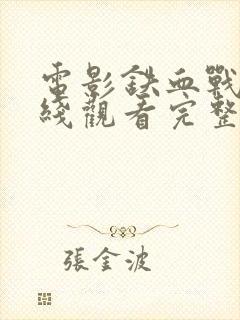 電影鉄血戰
綫觀看完整
張金波